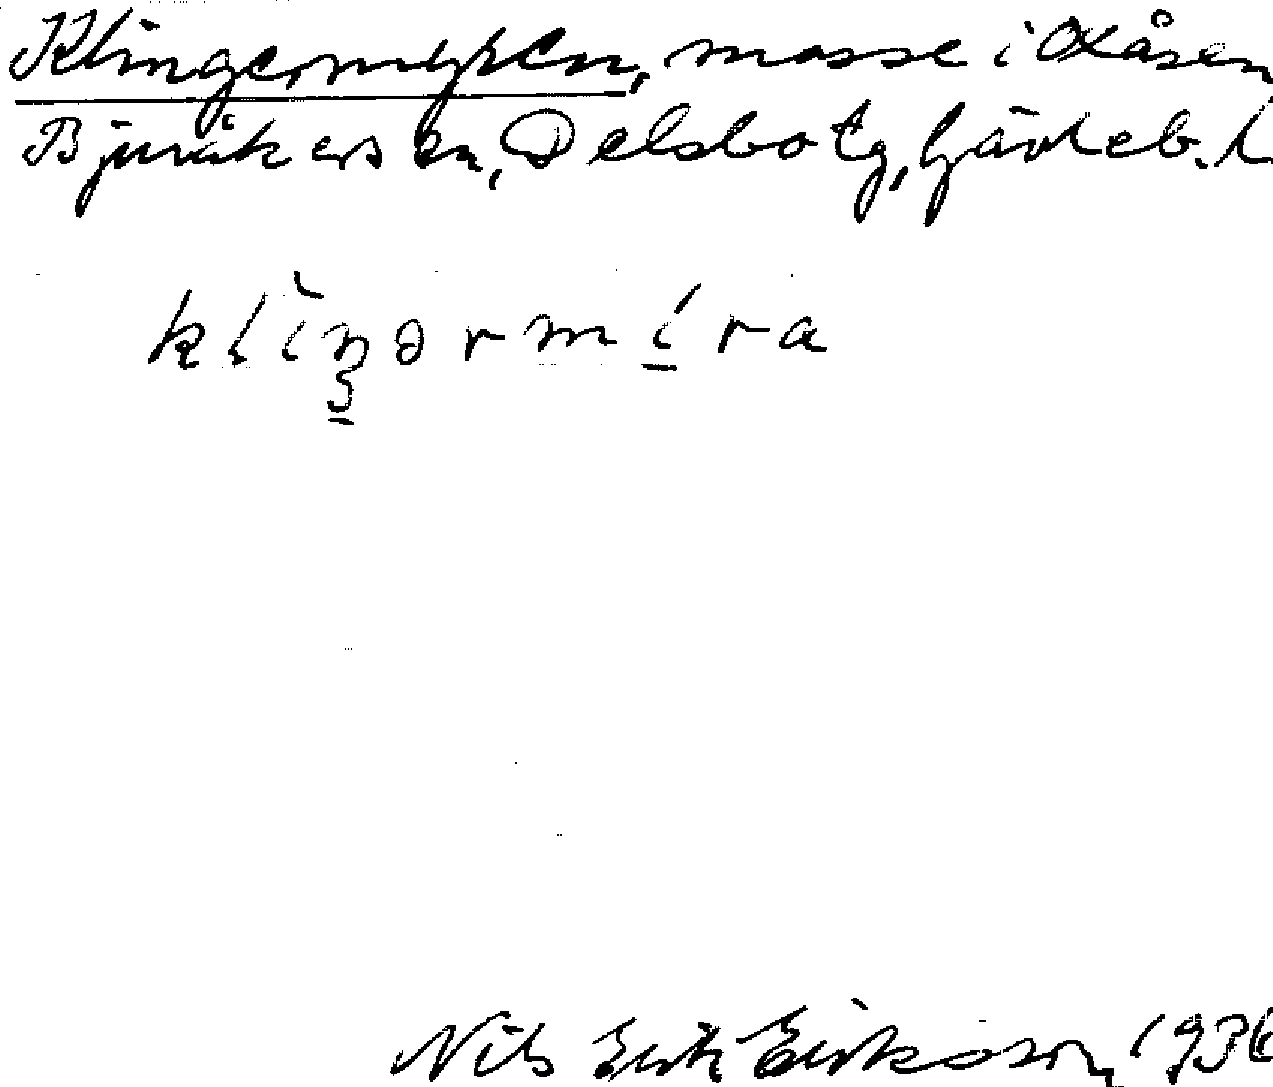 Klingermyren, mosse i Åsen
Bjuråkers sn, Delsbo tg, Gävleb. l
klìŋərmíra
Nils Erik Eriksson, 1936